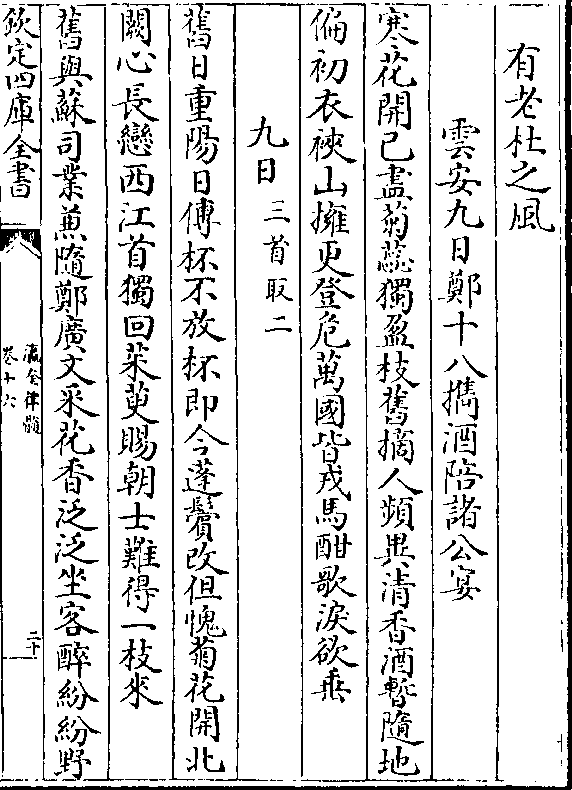 有老杜之風
雲安九日鄭十八攜酒陪諸公宴
寒花開已盡菊蘂獨盈枝舊摘人頻異清香酒暫隨地
偏初衣裌山擁更登危萬國皆戎馬酣歌淚欲垂
九日三首取二
舊日重陽日傳杯不放杯即今蓬鬢改但愧菊花開北
闕心長戀西江首獨回茱萸賜朝士難得一枝來
舊與蘇司業兼隨鄭廣文采花香泛泛坐客醉紛紛野
欽定四庫全書
瀛奎律髓
卷十六
二十